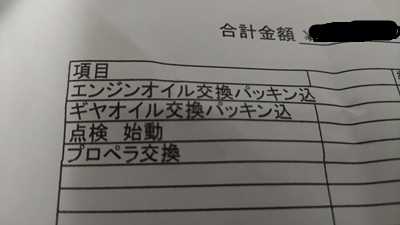 合計金額 ¥
項目
エンジンオイル交換パッキン込
ギヤオイル交換パッキン込
点検 始動
プロペラ交換